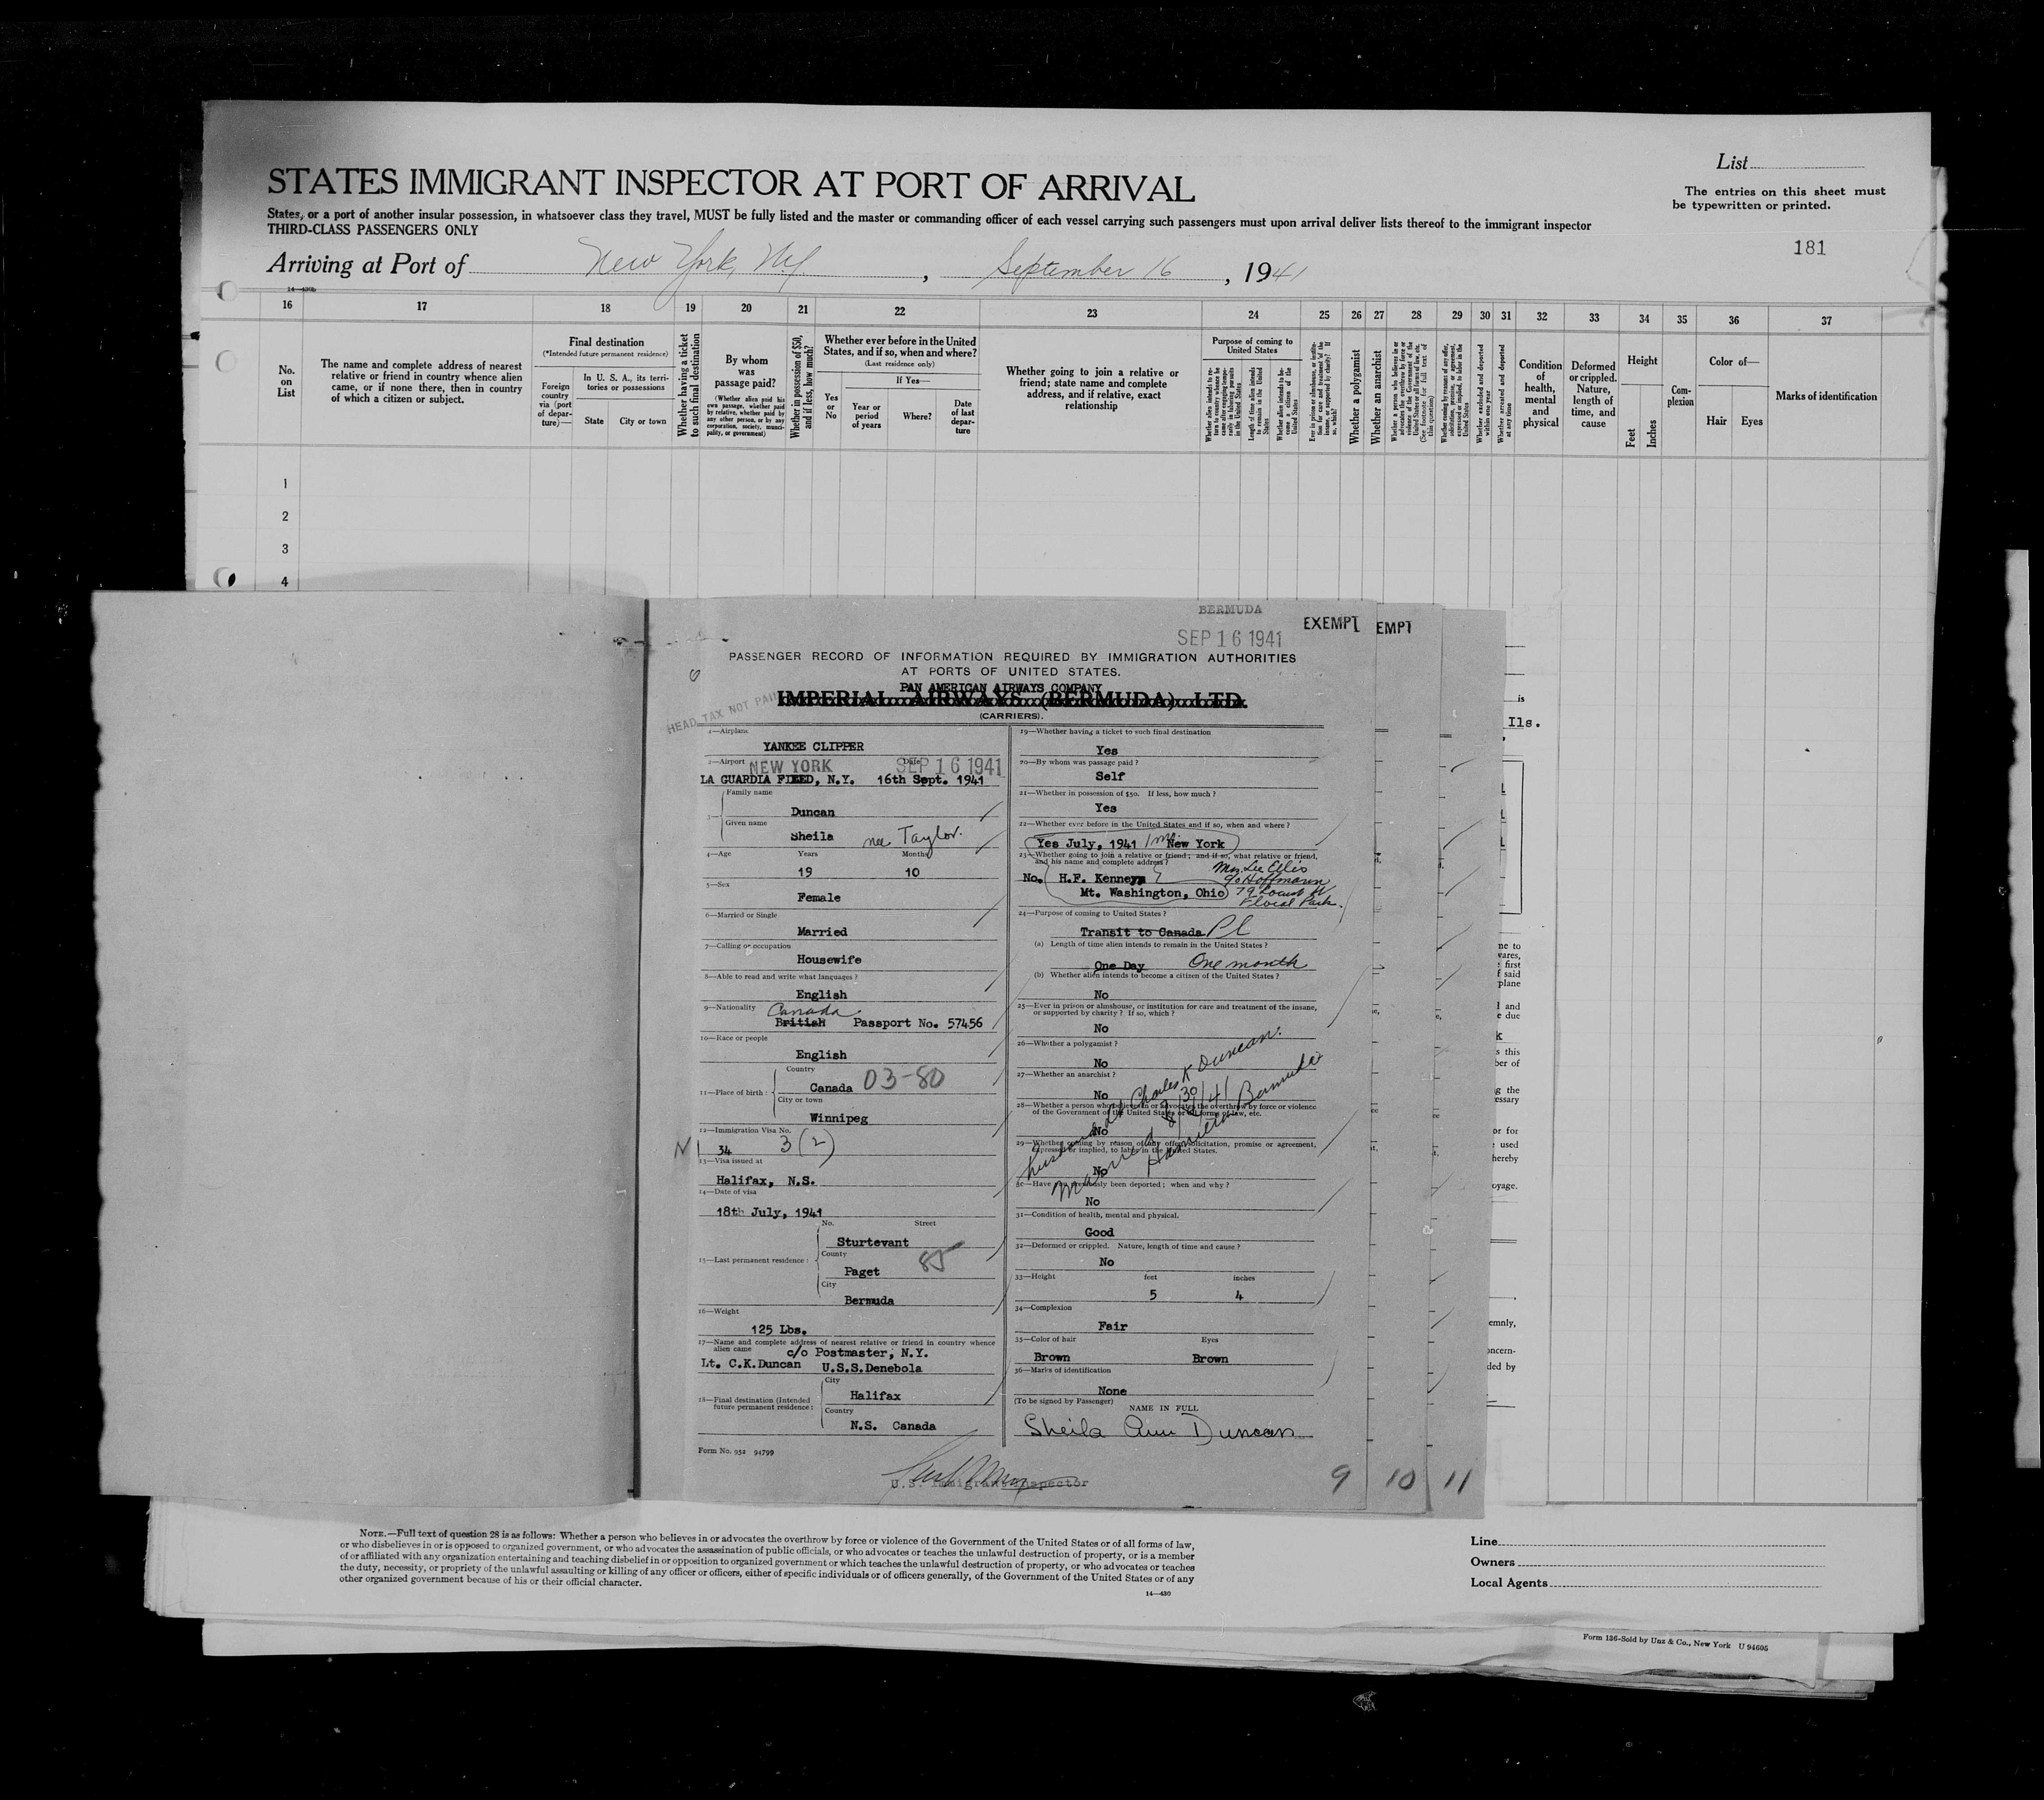 List
STATES IMMIGRANT INSPECTOR AT PORT OF ARRIVAL
The entries on this sheet must
be typewritten or printed.
States, or a port of another insular possession, in whatsoever class they travel, MUST be fully listed and the master or commanding officer of each vessel carrying such passengers must upon arrival deliver lists thereof to the immigrant inspector
THIRD-CLASS PASSENGERS ONLY
181
Arriving at Port of New York, N.Y. , September 16 , 1941
16 17 18 19 20 21 22 23 24 25 26 27 28 29 30 31 32 33 34 35 36 37
No.
on
List
The name and complete address of nearest
relative or friend in country whence alien
came, or if none there, then in country
of which a citizen or subject.
Final destination
(*Intended future permanent residence)
Foreign
country
via (port
of depar-
ture)—
In U. S. A., its terri-
tories or possessions
State City or town
Whether having a ticket
to such final destination
By whom
was
passage paid?
(Whether alien paid his
own passage, whether paid
by relative, whether paid by
any other person, or by any
corporation, society, munici-
pality, or government)
Whether in possession of $50,
and if less, how much?
Whether ever before in the United
States, and if so, when and where?
(Last residence only)
If Yes—
Yes
or
No
Year or
period
of years
Where?
Date
of last
depar-
ture
Whether going to join a relative or
friend; state name and complete
address, and if relative, exact
relationship
Purpose of coming to
United States
Whether a polygamist
Whether an anarchist
Condition
of
health,
mental
and
physical
Deformed
or crippled.
Nature,
length of
time, and
cause
Height
Feet
Inches
Com-
plexion
Color of—
Hair Eyes
Marks of identification
1
2
3
4
BERMUDA
SEP 16 1941
EXEMPT
EMPT
PASSENGER RECORD OF INFORMATION REQUIRED BY IMMIGRATION AUTHORITIES
AT PORTS OF UNITED STATES.
PAN AMERICAN AIRWAYS COMPANY
IMPERIAL AIRWAYS (BERMUDA) LTD.
(CARRIERS).
HEAD TAX NOT PAID
1—Airplane
YANKEE CLIPPER
2—Airport NEW YORK Date SEP 16 1941
LA GUARDIA FIEED, N.Y. 16th Sept. 1941
3— Family name
Duncan
Given name
Sheila nee Taylor.
4—Age Years Months
19 10
5—Sex
Female
6—Married or Single
Married
7—Calling or occupation
Housewife
8—Able to read and write what languages?
English
9—Nationality Canada
British Passport No. 57456
10—Race or people
English
11—Place of birth: Country
Canada 03-80
City or town
Winnipeg
12—Immigration Visa No.
34 3(2)
13—Visa issued at
Halifax, N.S.
14—Date of visa
18th July, 1941
15—Last permanent residence: No. Street
Sturtevant
County
Paget 85
City
Bermuda
16—Weight
125 Lbs.
17—Name and complete address of nearest relative or friend in country whence
alien came c/o Postmaster, N.Y.
Lt. C.K.Duncan U.S.S.Denebola
18—Final destination (Intended
future permanent residence:
City
Halifax
Country
N.S. Canada
Form No. 952 94799
19—Whether having a ticket to such final destination
Yes
20—By whom was passage paid?
Self
21—Whether in possession of $50. If less, how much?
Yes
22—Whether ever before in the United States and if so, when and where?
Yes July, 1941 New York
23—Whether going to join a relative or friend; and if so, what relative or friend,
and his name and complete address?
No. H.F. Kenneym
Mt. Washington, Ohio
Mrs. Lee Ellis
c/o Hoffmann
79 Locust
Floral Park.
24—Purpose of coming to United States?
Transit to Canada Pl
(a) Length of time alien intends to remain in the United States?
One Day One month
(b) Whether alien intends to become a citizen of the United States?
No
25—Ever in prison or almshouse, or institution for care and treatment of the insane,
or supported by charity? If so, which?
No
26—Whether a polygamist?
No
27—Whether an anarchist?
No
28—Whether a person who believes in or advocates the overthrow by force or violence
of the Government of the United States or all forms of law, etc.
No
29—Whether coming by reason of any offer, solicitation, promise or agreement,
expressed or implied, to labor in the United States.
No
husband Lt Charles K Duncan.
Married 8/30/41
Hamilton Bermuda
30—Have you previously been deported; when and why?
No
31—Condition of health, mental and physical.
Good
32—Deformed or crippled. Nature, length of time and cause?
No
33—Height feet inches
5 4
34—Complexion
Fair
35—Color of hair Eyes
Brown Brown
36—Marks of identification
None
(To be signed by Passenger)
NAME IN FULL
Sheila Ann Duncan
U.S. Immigrant Inspector
9 10 11
NOTE.—Full text of question 28 is as follows: Whether a person who believes in or advocates the overthrow by force or violence of the Government of the United States or of all forms of law,
or who disbelieves in or is opposed to organized government, or who advocates the assassination of public officials, or who advocates or teaches the unlawful destruction of property, or is a member
of or affiliated with any organization entertaining and teaching disbelief in or opposition to organized government or which teaches the unlawful destruction of property, or who advocates or teaches
the duty, necessity, or propriety of the unlawful assaulting or killing of any officer or officers, either of specific individuals or of officers generally, of the Government of the United States or of any
other organized government because of his or their official character.
14—430
Line
Owners
Local Agents
Form 136-Sold by Unz & Co., New York U 94605